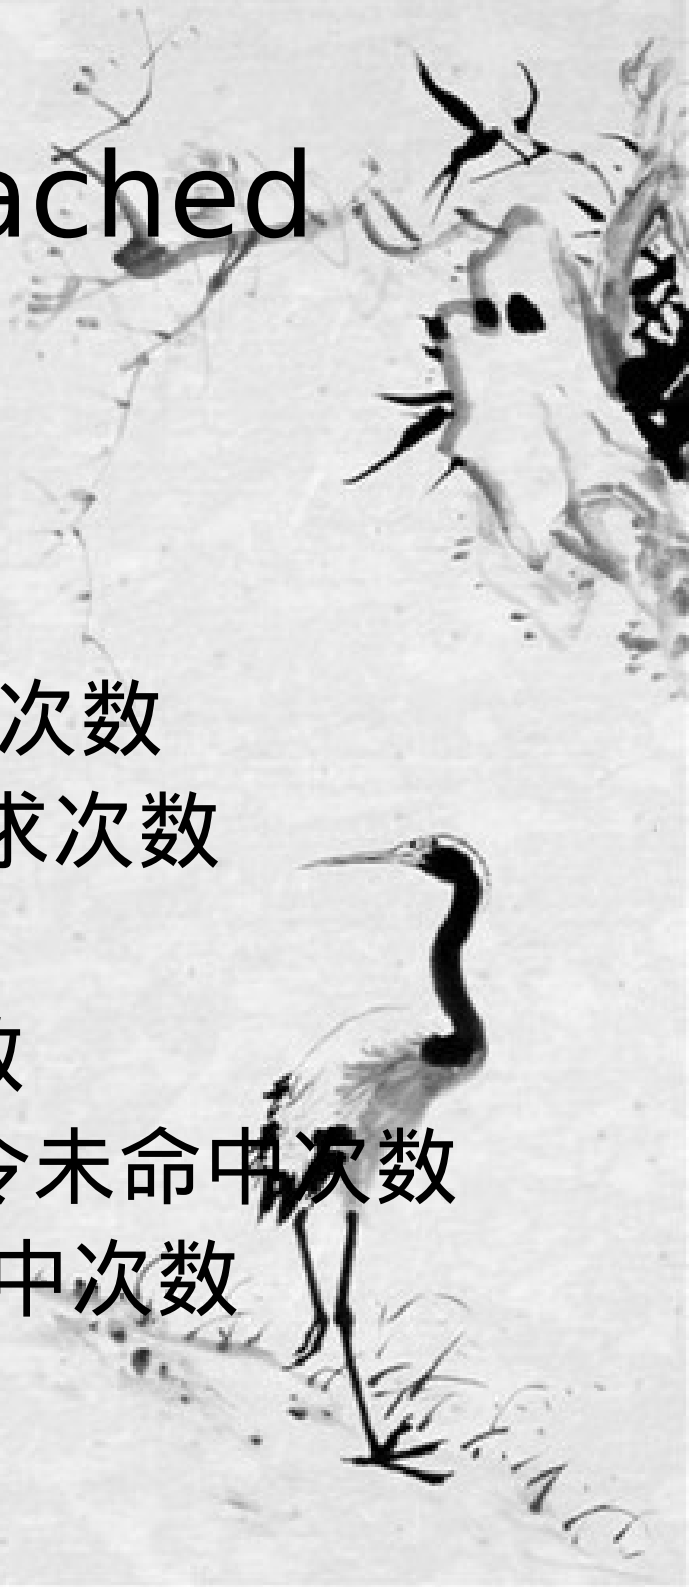 ached
次数
求次数
数
令未命中次数
中次数